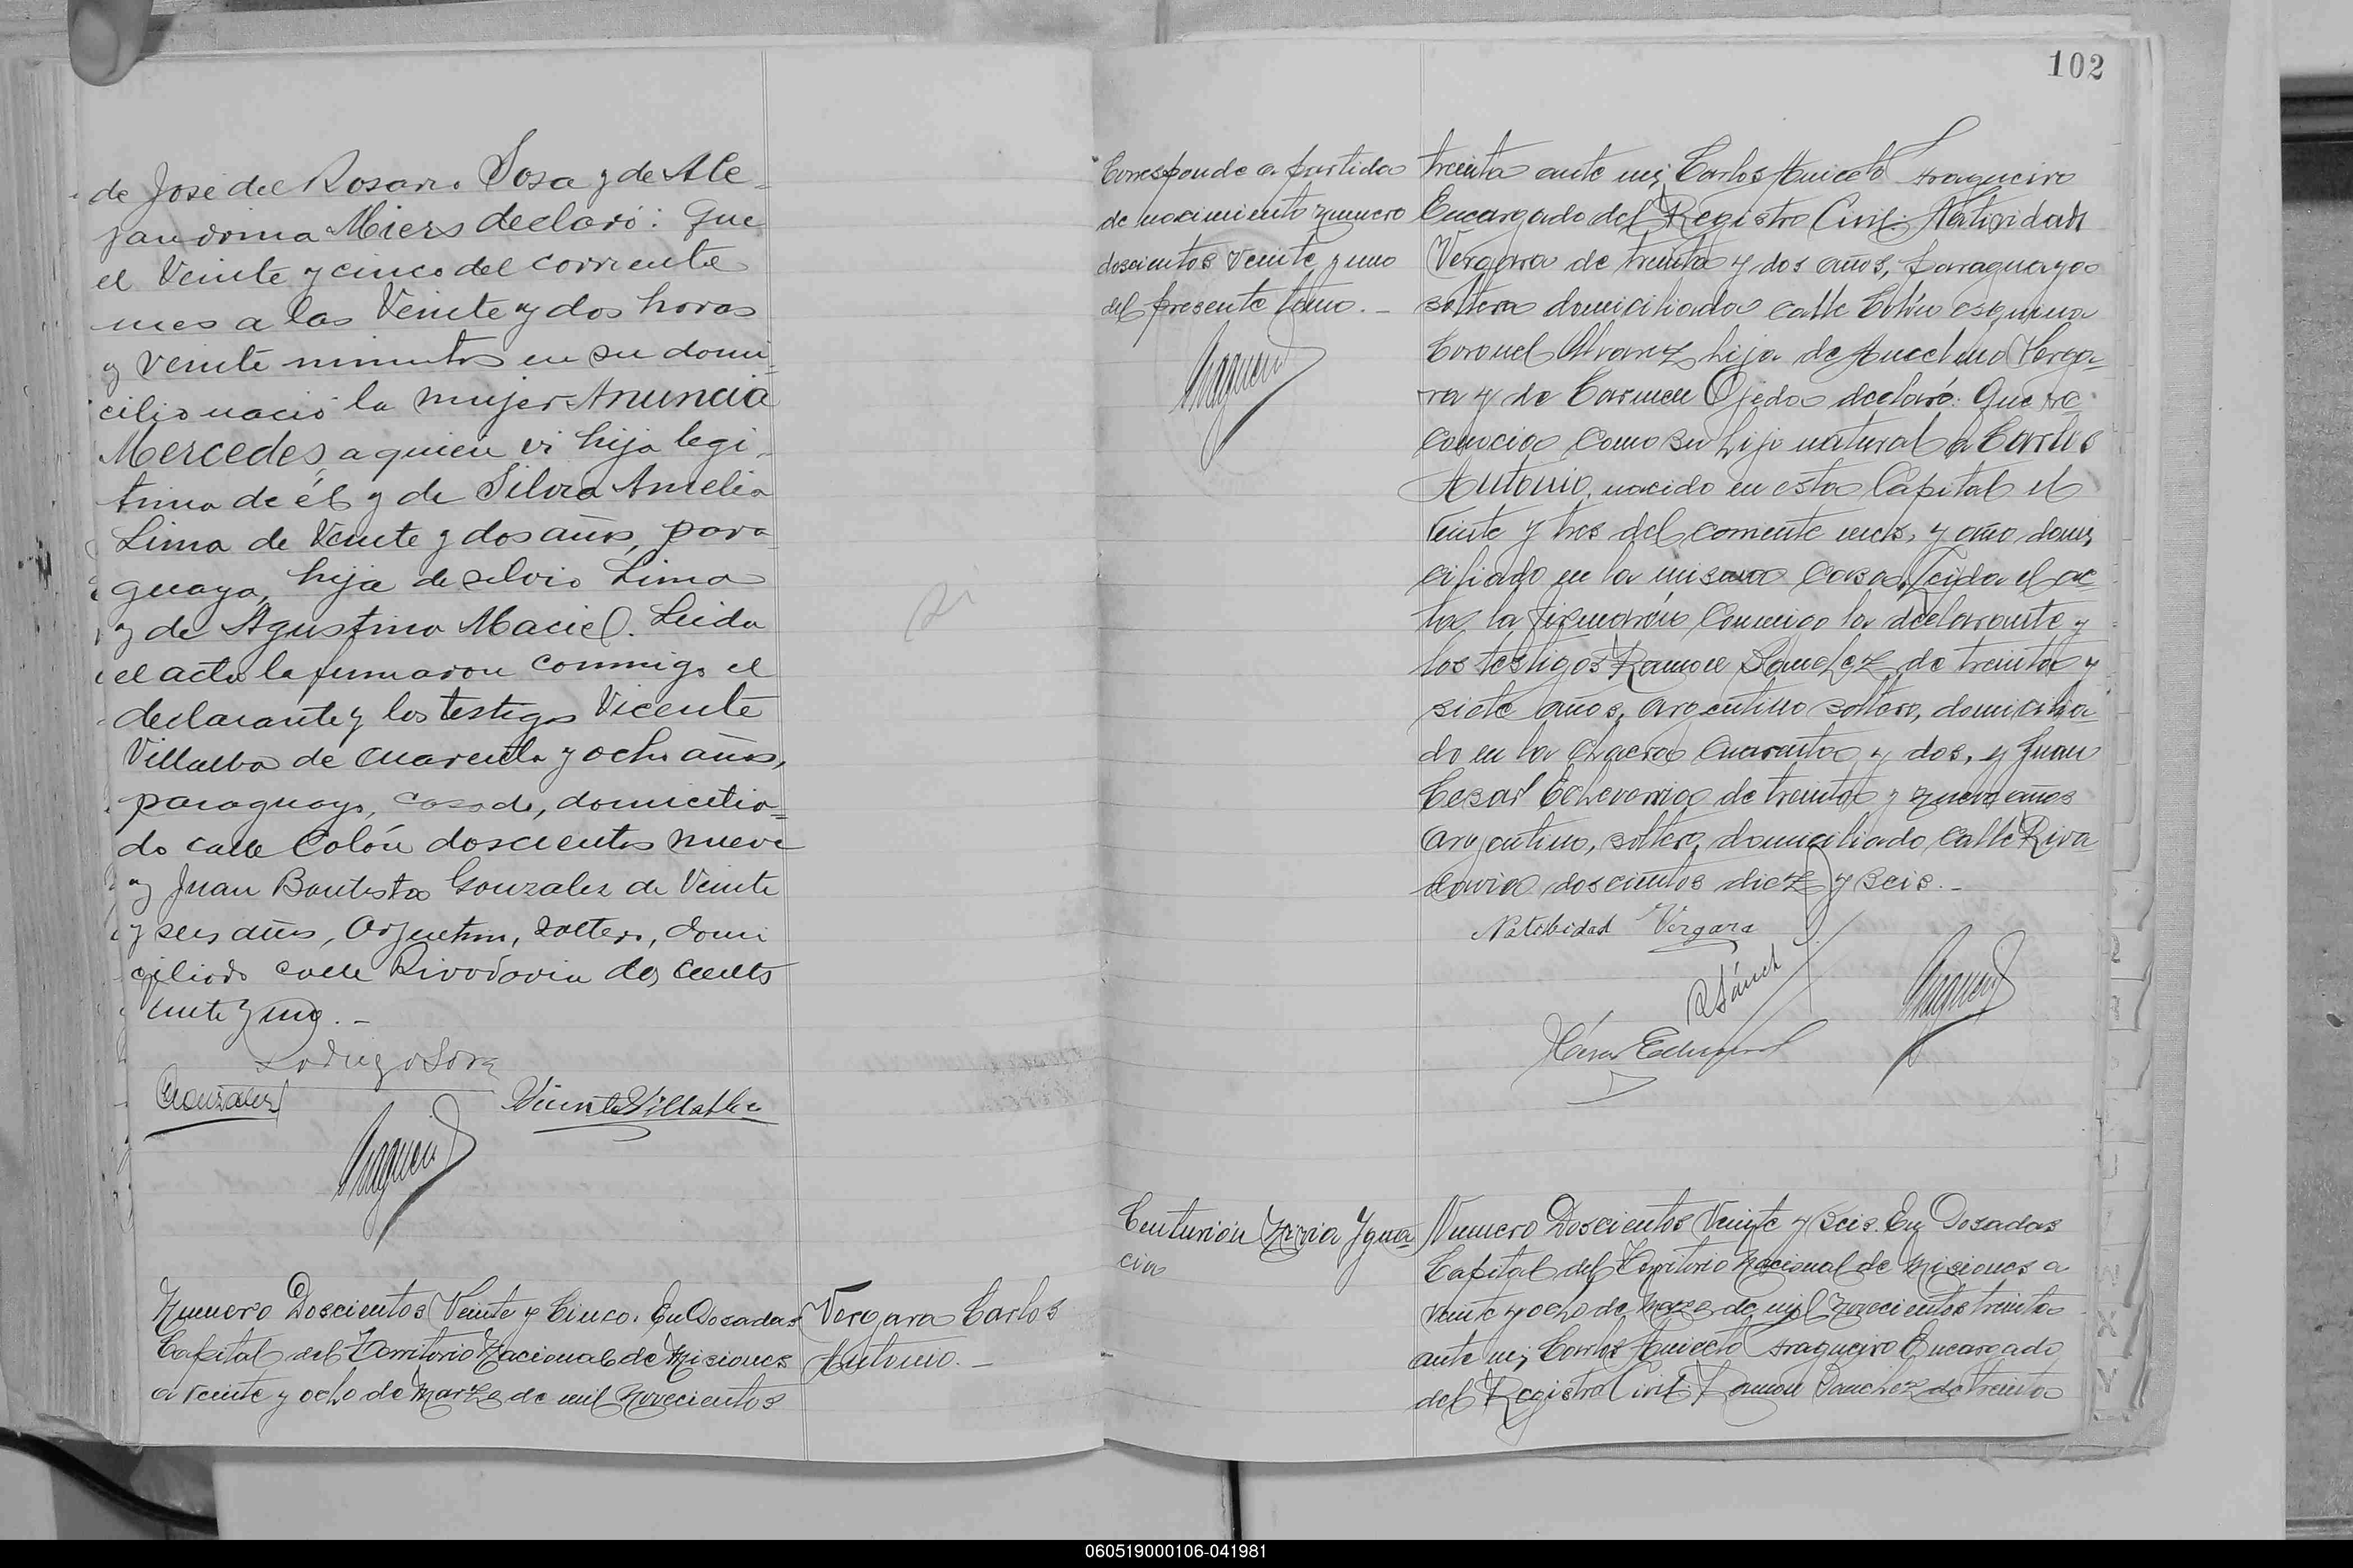 de José del Rosario Sosa y de Ale-
jandrina Miers declaró: Que
el Veinte y cinco del corriente
mes a las Veinte y dos horas
y veinte minutos en su domi-
cilio nació la mujer Anuncia
Mercedes, a quien vi hija legi-
tima de él y de Silvia Amelia
Lima de Veinte y dos años, para-
guaya, hija de Silvio Lima
y de Agustina Maciel. Leida
el acta la firmaron conmigo el
declarante y los testigos Vicente
Villalba de cuarenta y ocho años,
paraguayo, casado, domicilia-
do calle Colón doscientos nueve
y Juan Bautista Gonzalez de Veinte
y seis años, Argentino, soltero, domi
ciliado calle Rivadavia dos cientos
veinte y uno. -
Gonzalez
Vicente Villalba
Numero Doscientos Veinte y Cinco. En Posadas
Capital del Territorio Nacional de Misiones
a veinte y ocho de Marzo de mil novecientos
Vergara Carlos
Antonio. -
102
Corresponde a partida
de nacimiento numero
doscientos veinte y uno
del presente tomo. -
treinta ante mi, Carlos Aniceto Fragueiro
Encargado del Registro Civil: Natividad
Vergara de treinta y dos años, Paraguaya
soltera domiciliada calle Colón esquina
Coronel Alvarez hija de Anselmo Verga-
ra y de Carmen Ojeda declaró: Que re-
conocia como su hijo natural a Carlos
Antonio, nacido en esta Capital el
veinte y tres del corriente mes, y año domi
ciliado en la misma casa. Leida el ac-
ta la firmarón conmigo la declarante y
los testigos Ramon Sanchez de treinta y
siete años, argentino soltero, domicilia-
do en la chacra cuarenta y dos, y Juan
Cesar Echeverria de treinta y nueve años
argentino, soltero, domiciliado calle Riva
davia doscientos diez y seis. -
Natibidad Vergara
R Sánch
Centurión Ygna-
cia
Numero Doscientos Veinte y Seis. En Posadas
Capital del Territorio Nacional de Misiones a
veinte y ocho de Marzo de mil novecientos treinta
ante mi, Carlos Aniceto Fragueiro Encargado
del Registro Civil: Ramon Sanchez de treinta
060519000106-041981